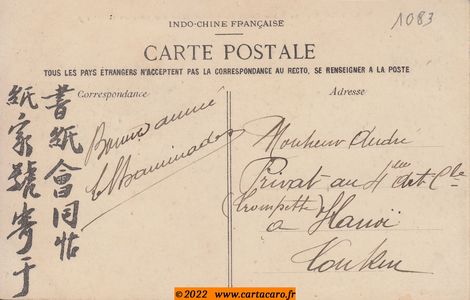 INDO-CHINE FRANÇAISE
1083
CARTE POSTALE
TOUS LES PAYS ÉTRANGERS N'ACCEPTENT PAS LA CORRESPONDANCE AU RECTO, SE RENSEIGNER A LA POSTE
Correspondance
Adresse
Bonne année
書紙會同帖
紙家號寄于
Monsieur André
Privat au 4
(trompette)
à Hanoï
Tonkin
©2022 www.cartacaro.fr